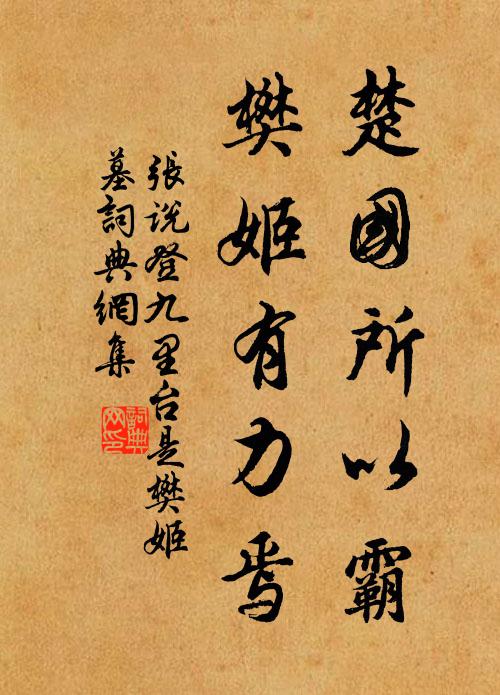 楚國所以霸
樊姬有力焉
張說登九里台是樊姬
墓詞典網集
詞典
网印